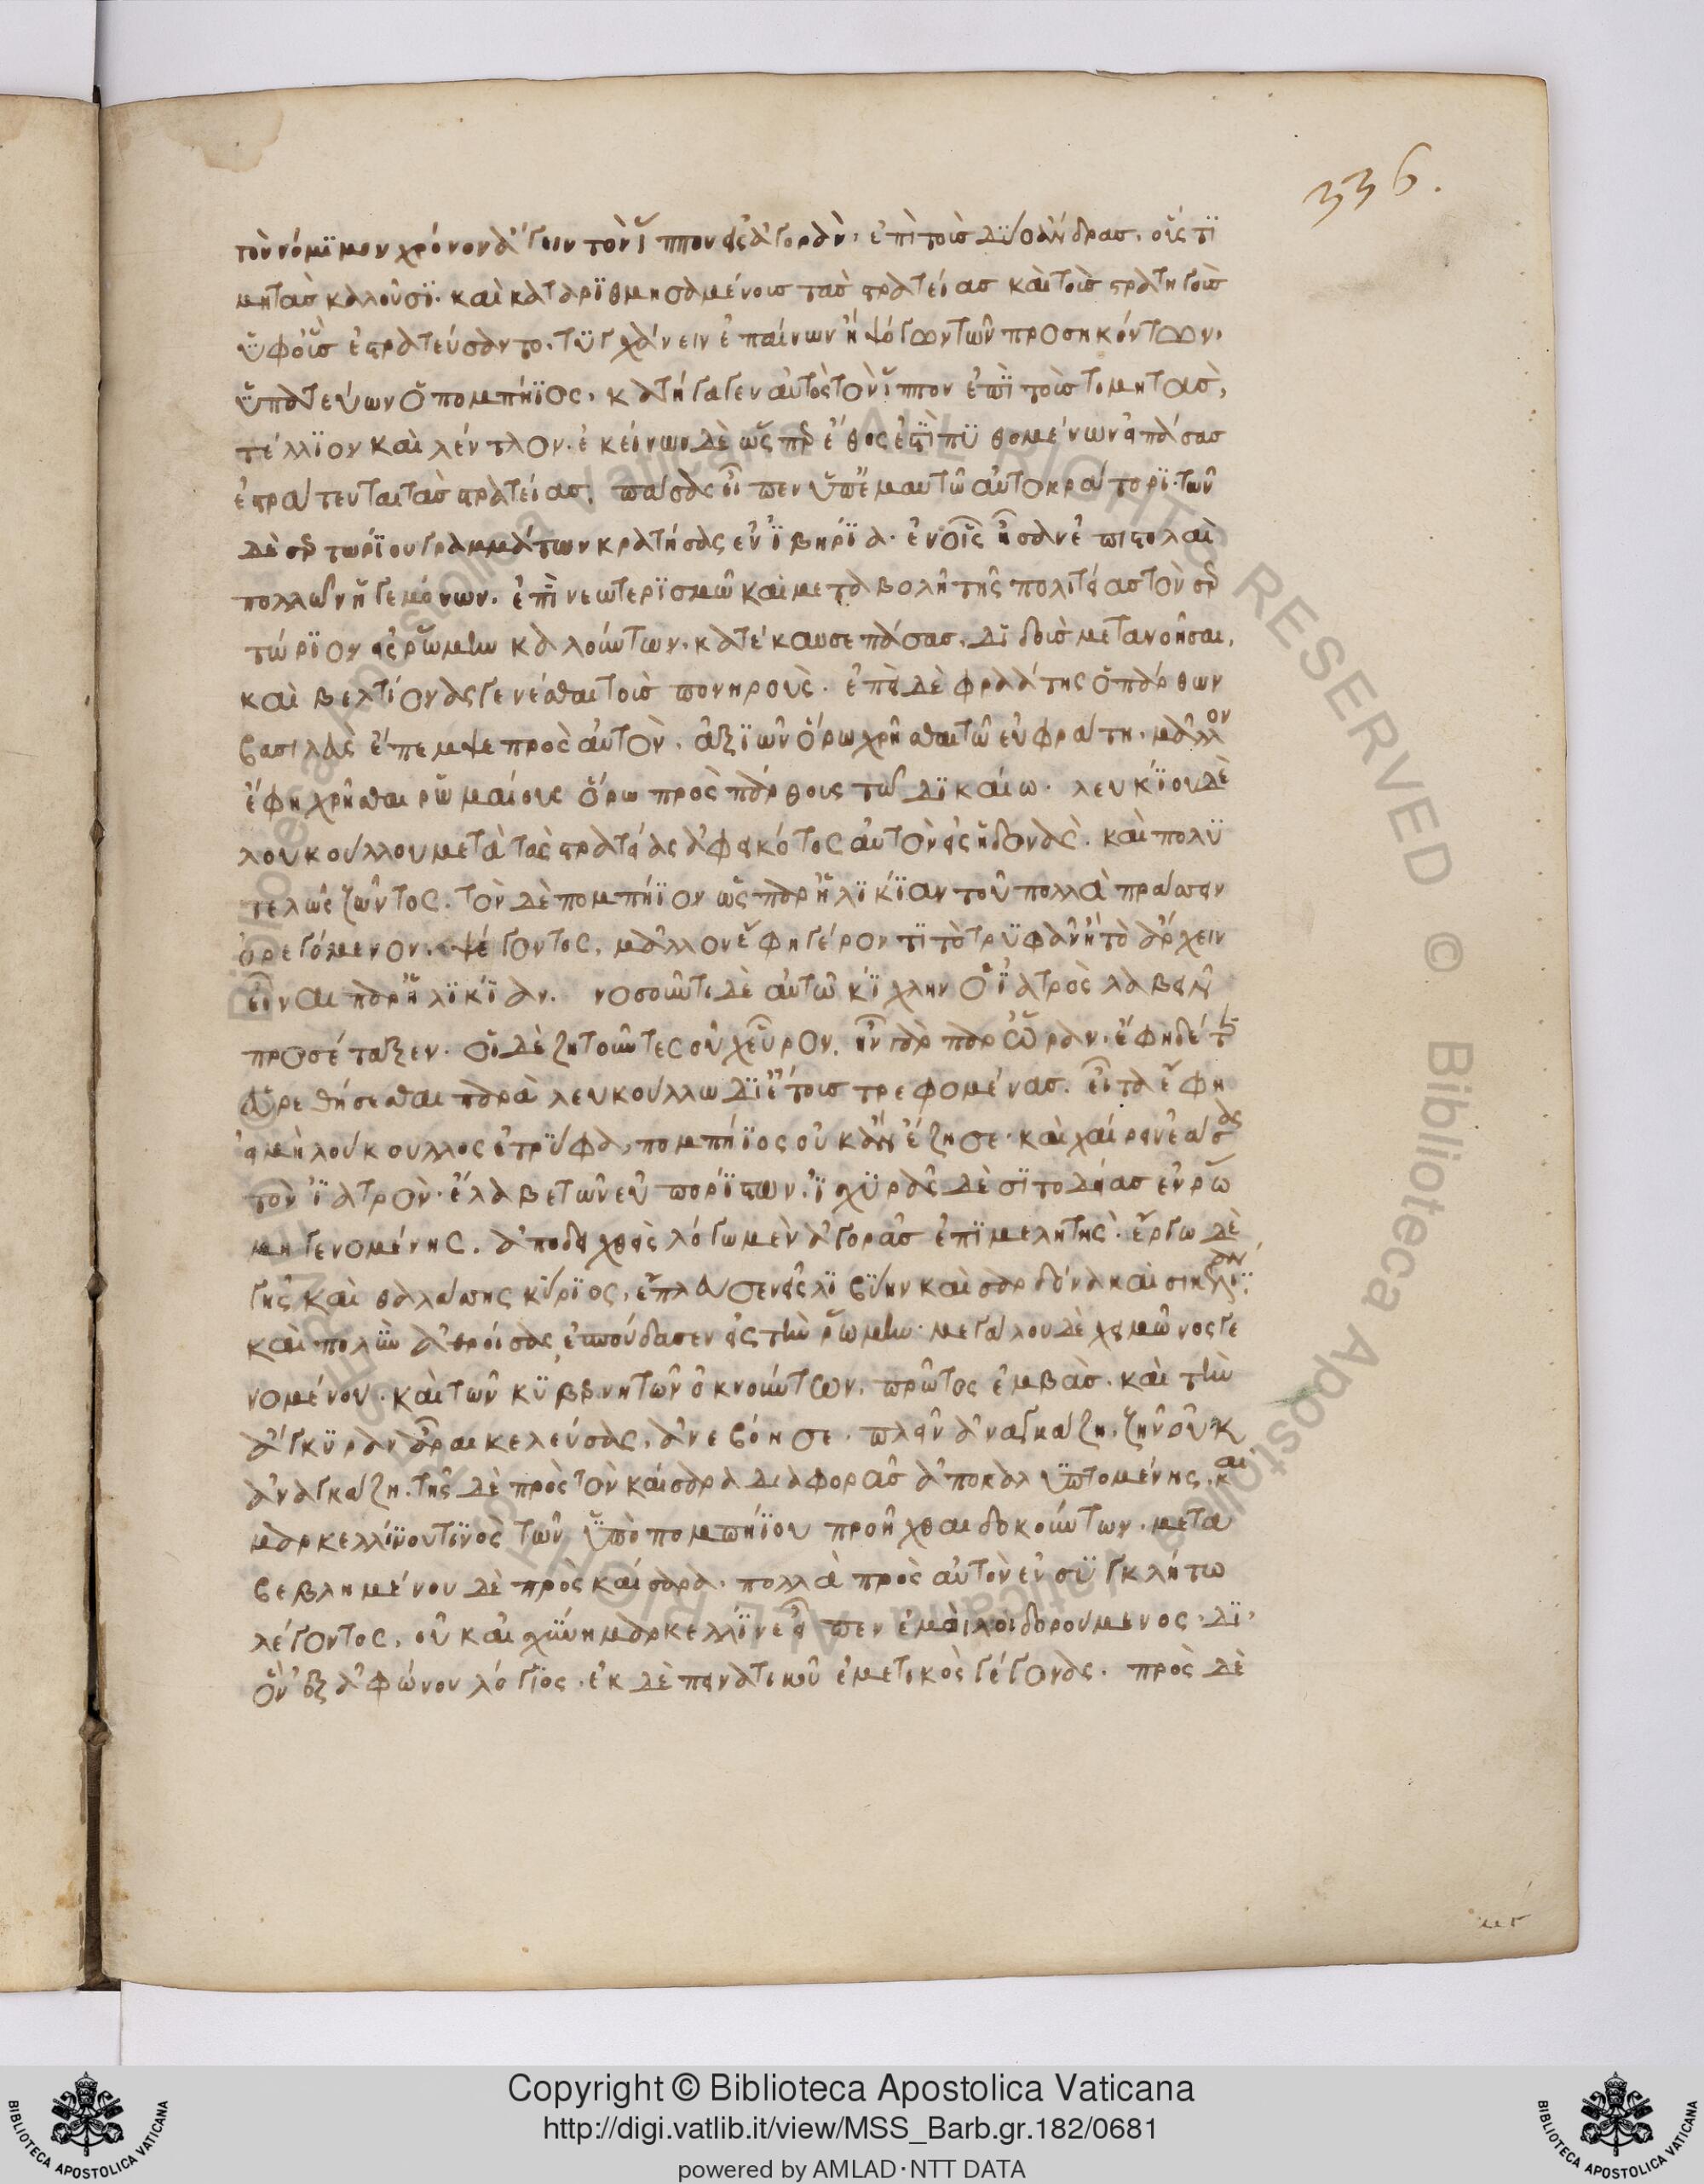 336.
τὸν νόμϊμον χρόνον ἄγειν τὸν ἵππον εἰς ἀγορὰν· ἐπὶ τοὺς δϋο ἄνδρας, οὓς τϊ
μητὰς καλοῦσϊ· καὶ καταρϊθμησαμένους τὰς στρατείας καὶ τοὺς στρατηγοὺς
ὑφ' οἷς ἐστρατεύσαντο, τϋγχάνειν ἐπαίνων ἢ ψόγων τῶν προσηκόντων.
ὑπατεύων ὁ πομπήϊος, κατήγαγεν αὐτὸς τὸν ἵππον ἐπὶ τοὺς τιμητὰς,
γέλλϊον καὶ λέντλον. ἐκείνων δὲ ὡς περ ἔθος ἐστὶ πϋθομένων εἰ πάσας
ἐστράτευται τὰς στρατείας, πάσας εἶπεν ὑπ' ἐμαυτῶ αὐτοκράτορϊ. τῶν
δὲ σερτωρίου γραμμάτων κρατήσας ἐν ἰβηρίᾳ· ἐν οἷς ἦσαν ἐπιστολαὶ
πολλῶν ἡγεμόνων. ἐπὶ νεωτερϊσμῶ καὶ μεταβολῆ τῆς πολιτείας τὸν σερ
τώρϊον εἰς ῥώμην καλούντων, κατέκαυσε πάσας, δϊδοὺς μετανοῆσαι,
καὶ βελτίονας γενέσθαι τοὺς πονηροὺς. ἐπεὶ δὲ φραάτης ὁ πάρθων
βασιλεὺς ἔπεμψε πρὸς αὐτὸν, ἀξϊῶν ὅρω χρῆσθαι τῶ εὐφράτη, μᾶλλον
ἔφη χρῆσθαι ῥωμαίους ὅρω πρὸς πάρθους τῶ δϊκαίω. λευκϊου δὲ
λουκούλλου μετὰ τὰς στρατείας ἀφεικότος αὐτὸν εἰς ἡδονὰς. καὶ πολϋ
τελῶς ζῶντος. τὸν δὲ πομπήϊον ὡς παρ' ἡλϊκίαν τοῦ πολλὰ πράσσειν
ὀρεγόμενον ψέγοντος, μᾶλλον ἔφη γέροντϊ τὸ τρϋφᾶν ἢ τὸ ἄρχειν
εἶναι παρ' ἡλϊκίαν. νοσοῦντι δὲ αὐτῶ κίχλην ὁ ἰατρὸς λαβεῖν
προσέταξεν. οἱ δὲ ζητοῦντες οὐχ εὗρον. ἦν γὰρ παρ' ὥραν. ἔφη δέ τις
εὑρεθήσεσθαι παρὰ λευκούλλω δϊ' ἔτους τρεφομένας. εἶτα ἔφη
εἰ μὴ λούκουλλος ἐτρϋφα, πομπήϊος οὐκ ἂν ἔζησε. καὶ χαίρειν ἐάσας
τὸν ἰατρὸν, ἔλαβε τῶν εὐπορίστων. ἰσχυρᾶς δὲ σϊτοδείας ἐν ῥώ
μη γενομένης. ἀποδειχθεὶς λόγω μὲν ἀγορᾶς ἐπϊμελητὴς. ἔργω δὲ
γῆς καὶ θαλάσσης κύρϊος, ἔπλευσεν εἰς λϊβύην καὶ σαρδόνα καὶ σικελίαν.
καὶ πολὺν ἀθροίσας, ἐσπούδασεν εἰς τὴν ῥώμην. μεγάλου δὲ χειμῶνος γε
νομένου. καὶ τῶν κϋβερνητῶν ὀκνούντων. πρῶτος ἐμβὰς. καὶ τὴν
ἄγκϋραν ἆραι κελεύσας, ἀνεβόησε. πλεῖν ἀνάγκαζη. ζῆν οὐκ
ἀνάγκαζη. τῆς δὲ πρὸς τὸν καίσαρα διαφορᾶς ἀποκαλϋπτομένης. καὶ
μαρκελλίνου τινὸς τῶν ὑπὸ πομπηΐου προῆχθαι δοκούντων. μετα
βεβλημένου δὲ πρὸς καίσαρα. πολλὰ πρὸς αὐτὸν ἐν σϋγκλήτω
λέγοντος, οὐκ αἰσχύνη μαρκελλῖνε εἶπεν ἐμοὶ λοιδορούμενος. δϊ'
ὃν ἐξ ἀφώνου λόγϊος. ἐκ δὲ πεινατικοῦ ἐμετικὸς γέγονας. πρὸς δὲ
Copyright © Biblioteca Apostolica Vaticana
http://digi.vatlib.it/view/MSS_Barb.gr.182/0681
powered by AMLAD·NTT DATA